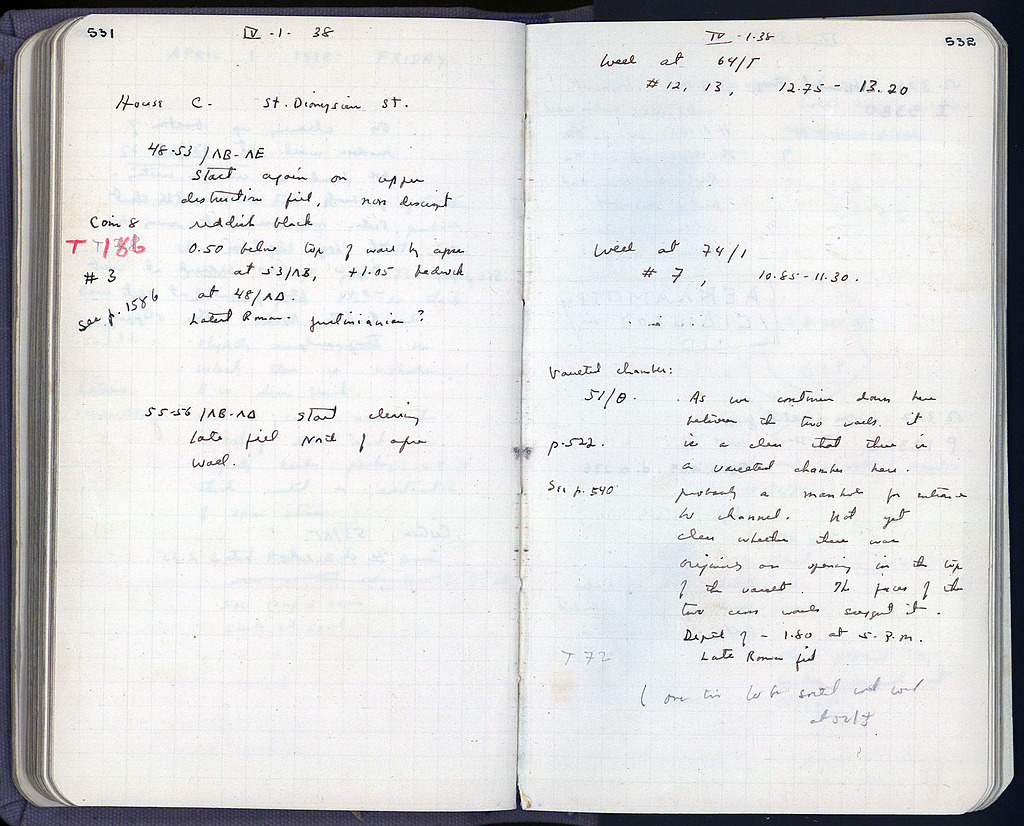 531
IV - 1 - 38
House C. St. Dionysian St.
48-53 / ΛB-ΛE
Start again on upper
destruction fill, non descript
Coin 8 reddish black
T 186 0.50 below top of wall by apse
# 3 at 53/ΛB, +1.05 bedrock
See p. 1586 at 48/ΛΔ.
Latest Roman - Justinianian?
55-56 / ΛB-ΛΔ Start clearing
late fill North of apse
wall.
532
IV - 1-38
Well at 64/Γ
# 12, 13, 12.75 - 13.20
Well at 74/I
# 7, 10.85-11.30.
Vaulted chamber:
51/Θ. As we continue down here
between the two walls, it
p. 522. is clear that there is
a vaulted chamber here.
See p. 540 probably a manhole for entrance
to channel. Not yet
clear whether there was
originally an opening in the top
of the vault. The faces of the
two cross walls suggest it.
Depth of - 1.80 at 5. P.M.
T 72 Late Roman fill
1 one tin to be sorted with well
at 52/